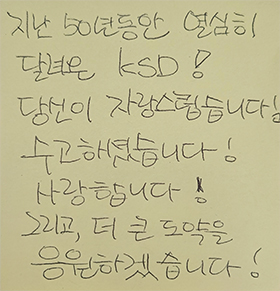 지난 50년동안 열심히
달려온 KSD!
당신이 자랑스럽습니다!
수고하셨습니다!
사랑합니다!
그리고, 더 큰 도약을
응원하겠습니다!